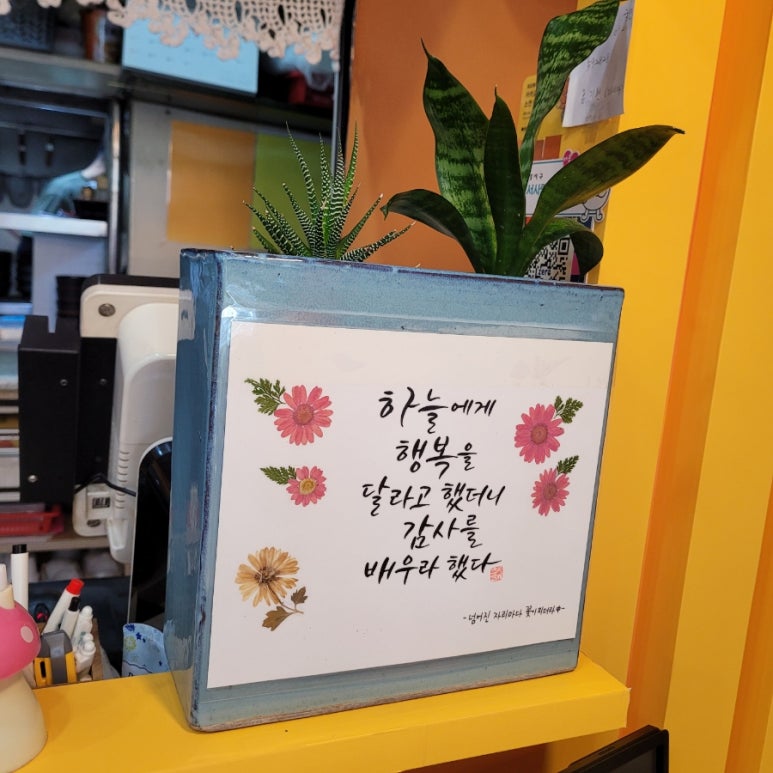 하늘에게
행복을
달라고 했더니
감사를
배우라 했다
-넘어진 자리마다 꽃이더라-